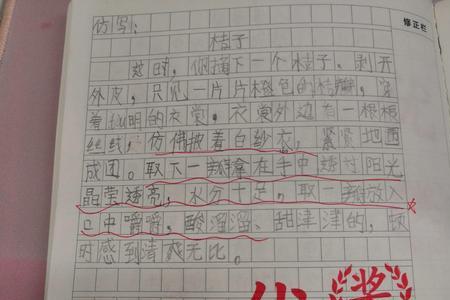 修正栏
仿写：
桔子
这时，你摘下一个桔子。剥开
外皮，只见一片片橙色的桔瓣，穿
着透明的衣裳。衣裳外边有一根根
丝线，仿佛披着白纱衣，紧紧地围
成团。取下一瓣拿在手中透过阳光
晶莹透亮，水分十足。取一瓣放入
口中嚼嚼，酸溜溜、甜津津的，顿
时感到清爽无比。
奖